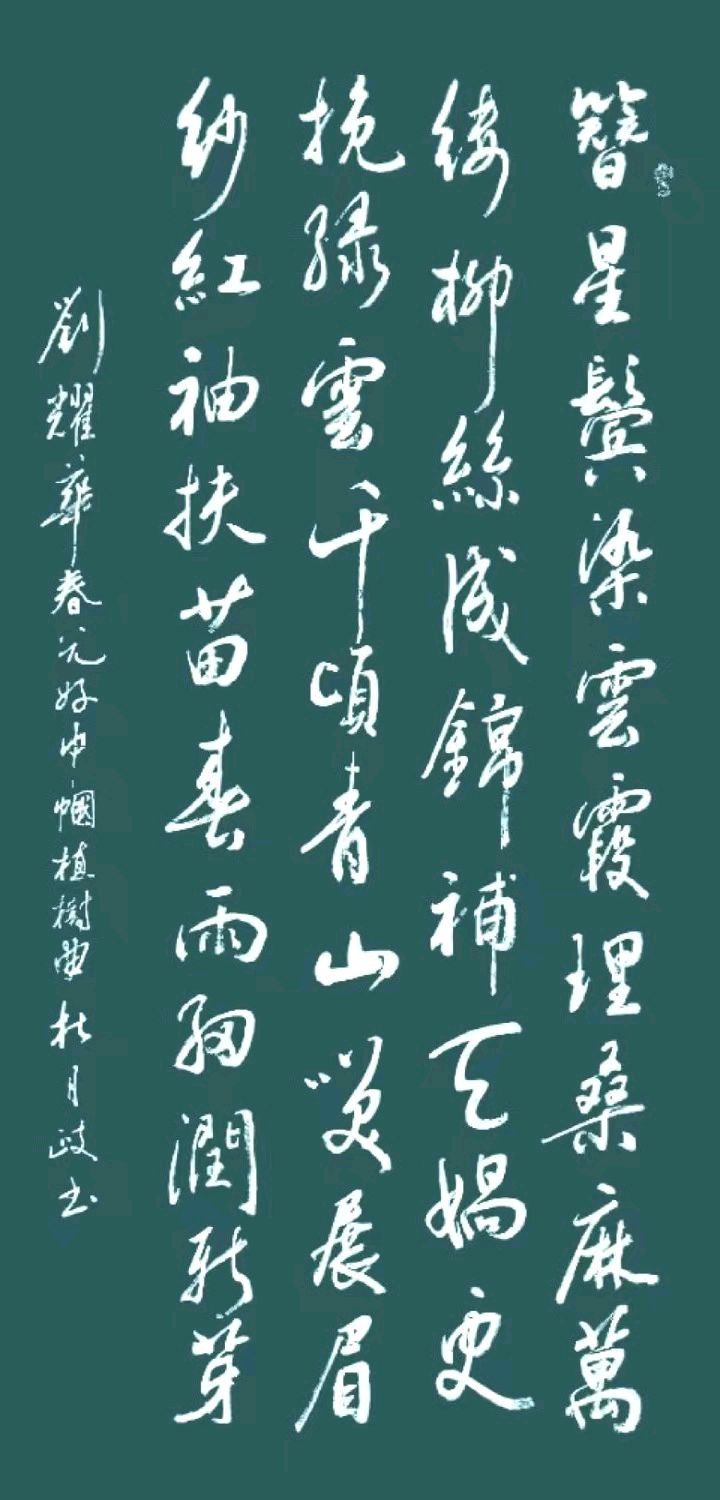 簪星鬓染雲霞理桑麻萬
缕柳絲成錦補天媧更
挽緑雲千頃青山咲展眉
紗紅袖扶苗春雨細潤新芽
劉耀華春元好巾幗植樹曲杜月岐书